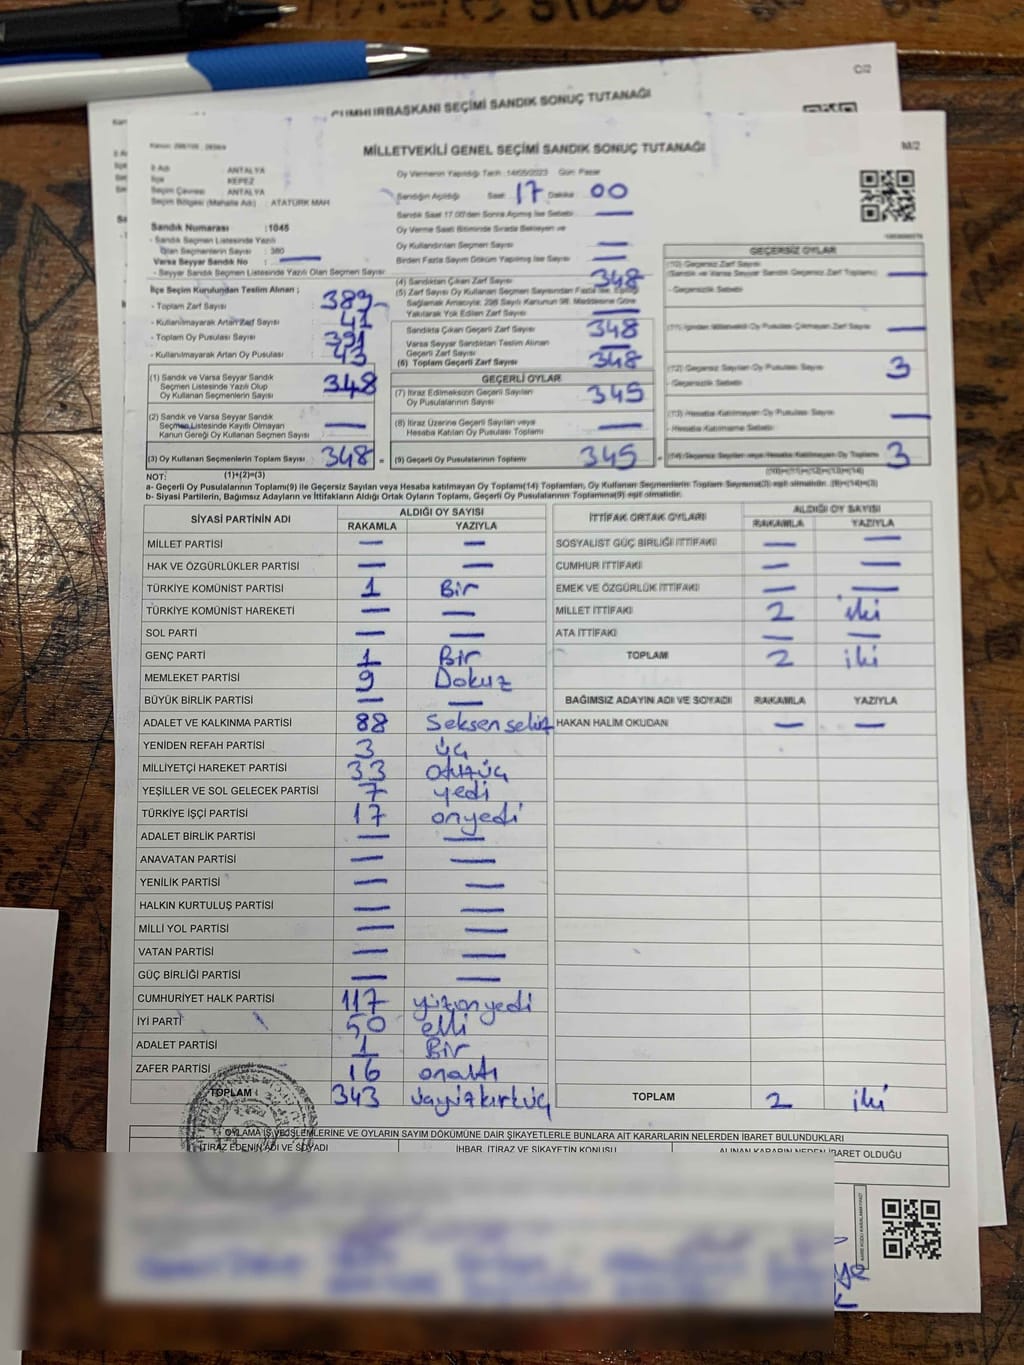 C/2
CUMHURBAŞKANI SEÇİMİ SANDIK SONUÇ TUTANAĞI
M/2
MİLLETVEKİLİ GENEL SEÇİMİ SANDIK SONUÇ TUTANAĞI
İl Adı : ANTALYA
İlçe : KEPEZ
Seçim Çevresi : ANTALYA
Seçim Bölgesi (Mahalle Adı) : ATATÜRK MAH.
Oy Vermenin Yapıldığı Tarih : 14/05/2023 Gün: Pazar
Sandığın Açıldığı Saat 17 Dakika 00
Sandık Saat 17.00'den Sonra Açılmış İse Sebebi —
Oy Verme Saati Bitiminde Sırada Bekleyen ve
Oy Kullandırılan Seçmen Sayısı —
Birden Fazla Sayım Döküm Yapılmış İse Sayısı —
Sandık Numarası :1045
- Sandık Seçmen Listesinde Yazılı
Olan Seçmenlerin Sayısı : 380
Varsa Seyyar Sandık No : —
- Seyyar Sandık Seçmen Listesinde Yazılı Olan Seçmen Sayısı:
İlçe Seçim Kurulundan Teslim Alınan ;
- Toplam Zarf Sayısı : 389
- Kullanılmayarak Artan Zarf Sayısı : 41
- Toplam Oy Pusulası Sayısı : 391
- Kullanılmayarak Artan Oy Pusulası : 43
(1) Sandık ve Varsa Seyyar Sandık
Seçmen Listesinde Yazılı Olup
Oy Kullanan Seçmenlerin Sayısı : 348
(2) Sandık ve Varsa Seyyar Sandık
Seçmen Listesinde Kayıtlı Olmayan
Kanun Gereği Oy Kullanan Seçmen Sayısı : —
(3) Oy Kullanan Seçmenlerin Toplam Sayısı : 348 =
(1)+(2)=(3)
(4) Sandıktan Çıkan Zarf Sayısı 348
(5) Zarf Sayısı Oy Kullanan Seçmen Sayısından Fazla İse, Eşitliği
Sağlamak Amacıyla, 298 Sayılı Kanunun 98. Maddesine Göre
Yakılarak Yok Edilen Zarf Sayısı —
Sandıkta Çıkan Geçerli Zarf Sayısı 348
Varsa Seyyar Sandıktan Teslim Alınan
Geçerli Zarf Sayısı —
(6) Toplam Geçerli Zarf Sayısı 348
GEÇERLİ OYLAR
(7) İtiraz Edilmeksizin Geçerli Sayılan
Oy Pusulalarının Sayısı 345
(8) İtiraz Üzerine Geçerli Sayılan veya
Hesaba Katılan Oy Pusulası Toplamı —
(9) Geçerli Oy Pusulalarının Toplamı 345
GEÇERSİZ OYLAR
(10) Geçersiz Zarf Sayısı
(Sandık ve Varsa Seyyar Sandık Geçersiz Zarf Toplamı) —
- Geçersizlik Sebebi:
(11) İçinden Milletvekili Oy Pusulası Çıkmayan Zarf Sayısı —
(12) Geçersiz Sayılan Oy Pusulası Sayısı 3
- Geçersizlik Sebebi:
(13) Hesaba Katılmayan Oy Pusulası Sayısı —
- Hesaba Katılmama Sebebi:
(14) Geçersiz Sayılan veya Hesaba Katılmayan Oy Toplamı 3
(10)+(11)+(12)+(13)=(14)
NOT:
a- Geçerli Oy Pusulalarının Toplamı(9) ile Geçersiz Sayılan veya Hesaba katılmayan Oy Toplamı(14) Toplamları, Oy Kullanan Seçmenlerin Toplam Sayısına(3) eşit olmalıdır. (9)+(14)=(3)
b- Siyasi Partilerin, Bağımsız Adayların ve İttifakların Aldığı Ortak Oyların Toplamı, Geçerli Oy Pusulalarının Toplamına(9) eşit olmalıdır.
SİYASİ PARTİNİN ADI ALDIĞI OY SAYISI
RAKAMLA YAZIYLA
MİLLET PARTİSİ — —
HAK VE ÖZGÜRLÜKLER PARTİSİ — —
TÜRKİYE KOMÜNİST PARTİSİ 1 Bir
TÜRKİYE KOMÜNİST HAREKETİ — —
SOL PARTİ — —
GENÇ PARTİ 1 Bir
MEMLEKET PARTİSİ 9 Dokuz
BÜYÜK BİRLİK PARTİSİ — —
ADALET VE KALKINMA PARTİSİ 88 Seksen sekiz
YENİDEN REFAH PARTİSİ 3 üç
MİLLİYETÇİ HAREKET PARTİSİ 33 otuzüç
YEŞİLLER VE SOL GELECEK PARTİSİ 7 yedi
TÜRKİYE İŞÇİ PARTİSİ 17 onyedi
ADALET BİRLİK PARTİSİ — —
ANAVATAN PARTİSİ — —
YENİLİK PARTİSİ — —
HALKIN KURTULUŞ PARTİSİ — —
MİLLİ YOL PARTİSİ — —
VATAN PARTİSİ — —
GÜÇ BİRLİĞİ PARTİSİ — —
CUMHURİYET HALK PARTİSİ 117 yüzonyedi
İYİ PARTİ 50 elli
ADALET PARTİSİ 1 Bir
ZAFER PARTİSİ 16 onaltı
TOPLAM 343 üçyüzkırküç
İTTİFAK ORTAK OYLARI ALDIĞI OY SAYISI
RAKAMLA YAZIYLA
SOSYALİST GÜÇ BİRLİĞİ İTTİFAKI — —
CUMHUR İTTİFAKI — —
EMEK VE ÖZGÜRLÜK İTTİFAKI — —
MİLLET İTTİFAKI 2 iki
ATA İTTİFAKI — —
TOPLAM 2 iki
BAĞIMSIZ ADAYIN ADI VE SOYADI RAKAMLA YAZIYLA
HAKAN HALİM OKUDAN — —
TOPLAM 2 iki
OYLAMA İŞ VE İŞLEMLERİNE VE OYLARIN SAYIM DÖKÜMÜNE DAİR ŞİKAYETLERLE BUNLARA AİT KARARLARIN NELERDEN İBARET BULUNDUKLARI
İTİRAZ EDENİN ADI VE SOYADI İHBAR, İTİRAZ VE ŞİKAYETİN KONUSU ALINAN KARARIN NEDEN İBARET OLDUĞU